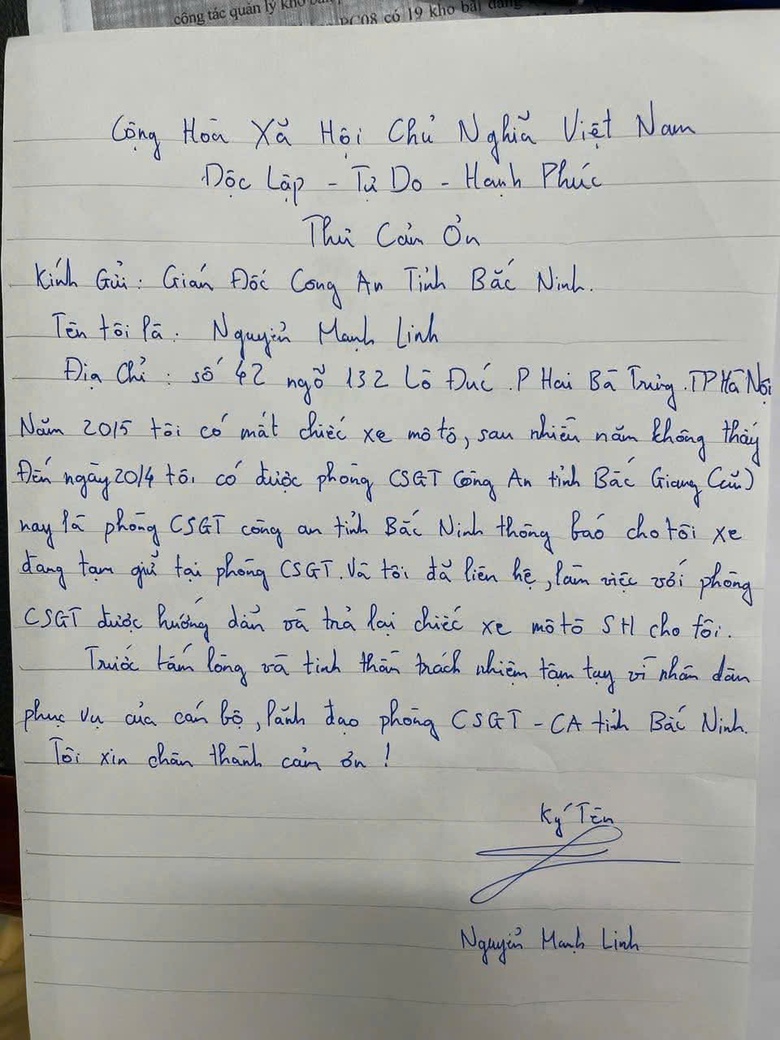 công tác quản lý kho bãi
PC08 có 19 kho bãi đang
Cộng Hòa Xã Hội Chủ Nghĩa Việt Nam
Độc Lập - Tự Do - Hạnh Phúc
Thư Cảm Ơn
Kính Gửi : Gián Đốc Cong An Tỉnh Bắc Ninh.
Tên tôi là : Nguyễn Mạnh Linh
Địa Chỉ : số 42 ngõ 132 Lò Đúc .P Hai Bà Trưng .TP Hà Nội
Năm 2015 tôi có mất chiếc xe mô tô, sau nhiều năm không thấy
Đến ngày 20/4 tôi có được phòng CSGT Công An tỉnh Bắc Giang (cũ)
nay là phòng CSGT công an tỉnh Bắc Ninh thông báo cho tôi xe
đang tạm giữ tại phòng CSGT. Và tôi đã liên hệ, làm việc với phòng
CSGT được hướng dẫn và trả lại chiếc xe mô tô SH cho tôi.
Trước tấm lòng và tinh thần trách nhiệm tậm tuy vì nhân dân
phục vụ của cán bộ, lãnh đạo phòng CSGT - CA tỉnh Bắc Ninh.
Tôi xin chân thành cảm ơn !
Ký Tên
Nguyễn Mạnh Linh